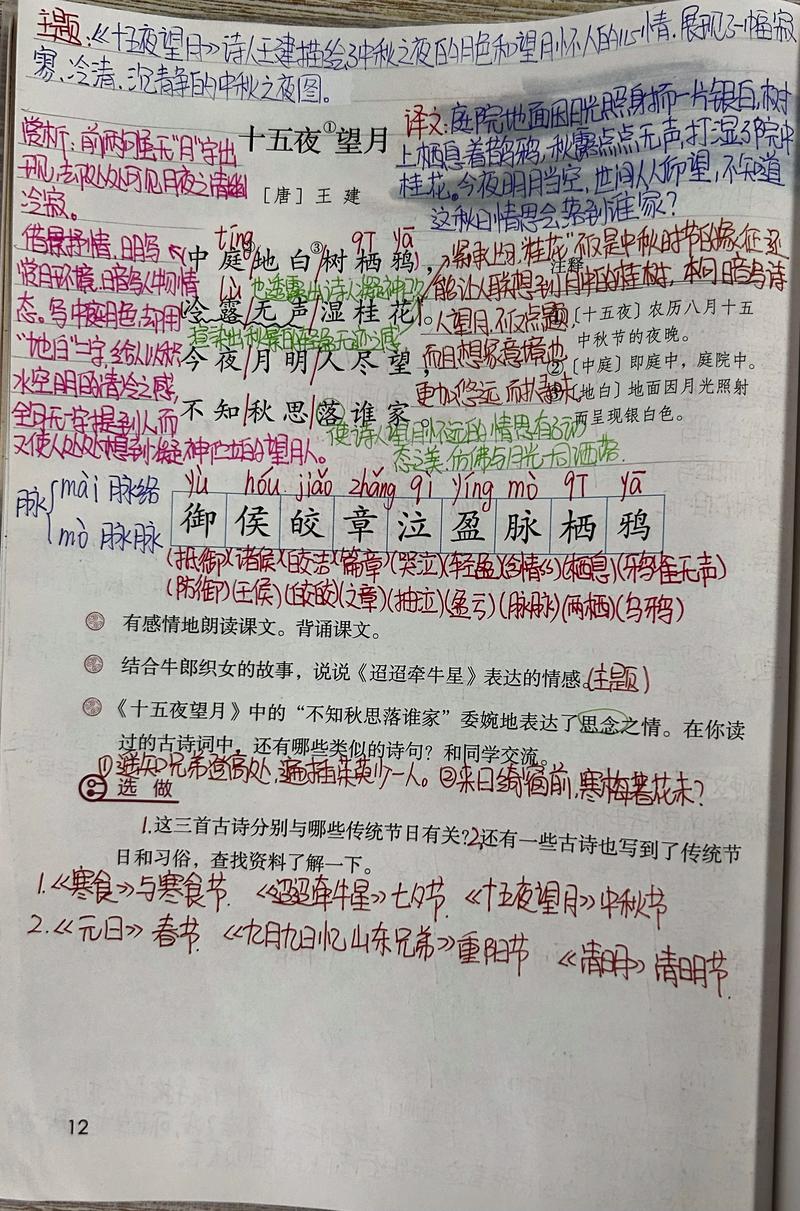 主题:《十五夜望月》诗人王建描绘了中秋之夜的月色和望月怀人的心情.展现了一幅寂
寥、冷清、沉静的中秋之夜图。
赏析:前两句虽无“月”字出
现,去处处可见月夜之清幽
冷寂。
借景抒情,明写
赏月环境,暗写人物情
态。写中庭月色,却用
“地白”二字,给人以积
水空明的清冷之感,
全句无一字提到人而
又使人处处想到凝神伫立的望月人。
译文:庭院地面因月光照射而一片银白,树
上栖息着鹊鸦,秋露点点无声,打湿了院中
桂花。今夜明月当空,世间人人仰望,不知道
这秋日情思会落到谁家?
十五夜①望月
[唐]王 建
tíng qī yā
中庭②地白③树栖鸦,
lù 也透露出诗人凝神
冷露无声湿桂花。
渲染出秋露的轻盈无迹之感
今夜月明人尽望,
不知秋思落谁家。
紧承上句.“桂花”不仅是中秋时节的象征,还
能让人联想到月中的桂树,本句暗写诗
人望月,不仅点题,
而且想象意境也
更加悠远而扣寻味
使诗人望月怀远的情思有了动
态之美.仿佛与月光一同洒落.
注释
①〔十五夜〕农历八月十五
中秋节的夜晚。
②〔中庭〕即庭中,庭院中。
③〔地白〕地面因月光照射
而呈现银白色。
脉 mài 脉络
mò 脉脉
yù hóu jiǎo zhāng qì yíng mò qī yā
御 侯 皎 章 泣 盈 脉 栖 鸦
(抵御)(诸侯)(皎洁)(篇章)(哭泣)(轻盈)(含情~~)(栖息)(鸦雀无声)
(防御)(王侯)(皎皎)(文章)(抽泣)(盈亏)(脉脉)(两栖)(乌鸦)
有感情地朗读课文。背诵课文。
结合牛郎织女的故事,说说《迢迢牵牛星》表达的情感。(主题)
《十五夜望月》中的“不知秋思落谁家”委婉地表达了思念之情。在你读
过的古诗词中,还有哪些类似的诗句?和同学交流。
①遥知兄弟登高处,遍插茱萸少一人。②来日绮窗前,寒梅著花未?
选做
1.这三首古诗分别与哪些传统节日有关?2.还有一些古诗也写到了传统节
日和习俗,查找资料了解一下。
1.《寒食》与寒食节.《迢迢牵牛星》七夕节.《十五夜望月》中秋节
2.《元日》春节.《九月九日忆山东兄弟》重阳节 《清明》清明节.
12